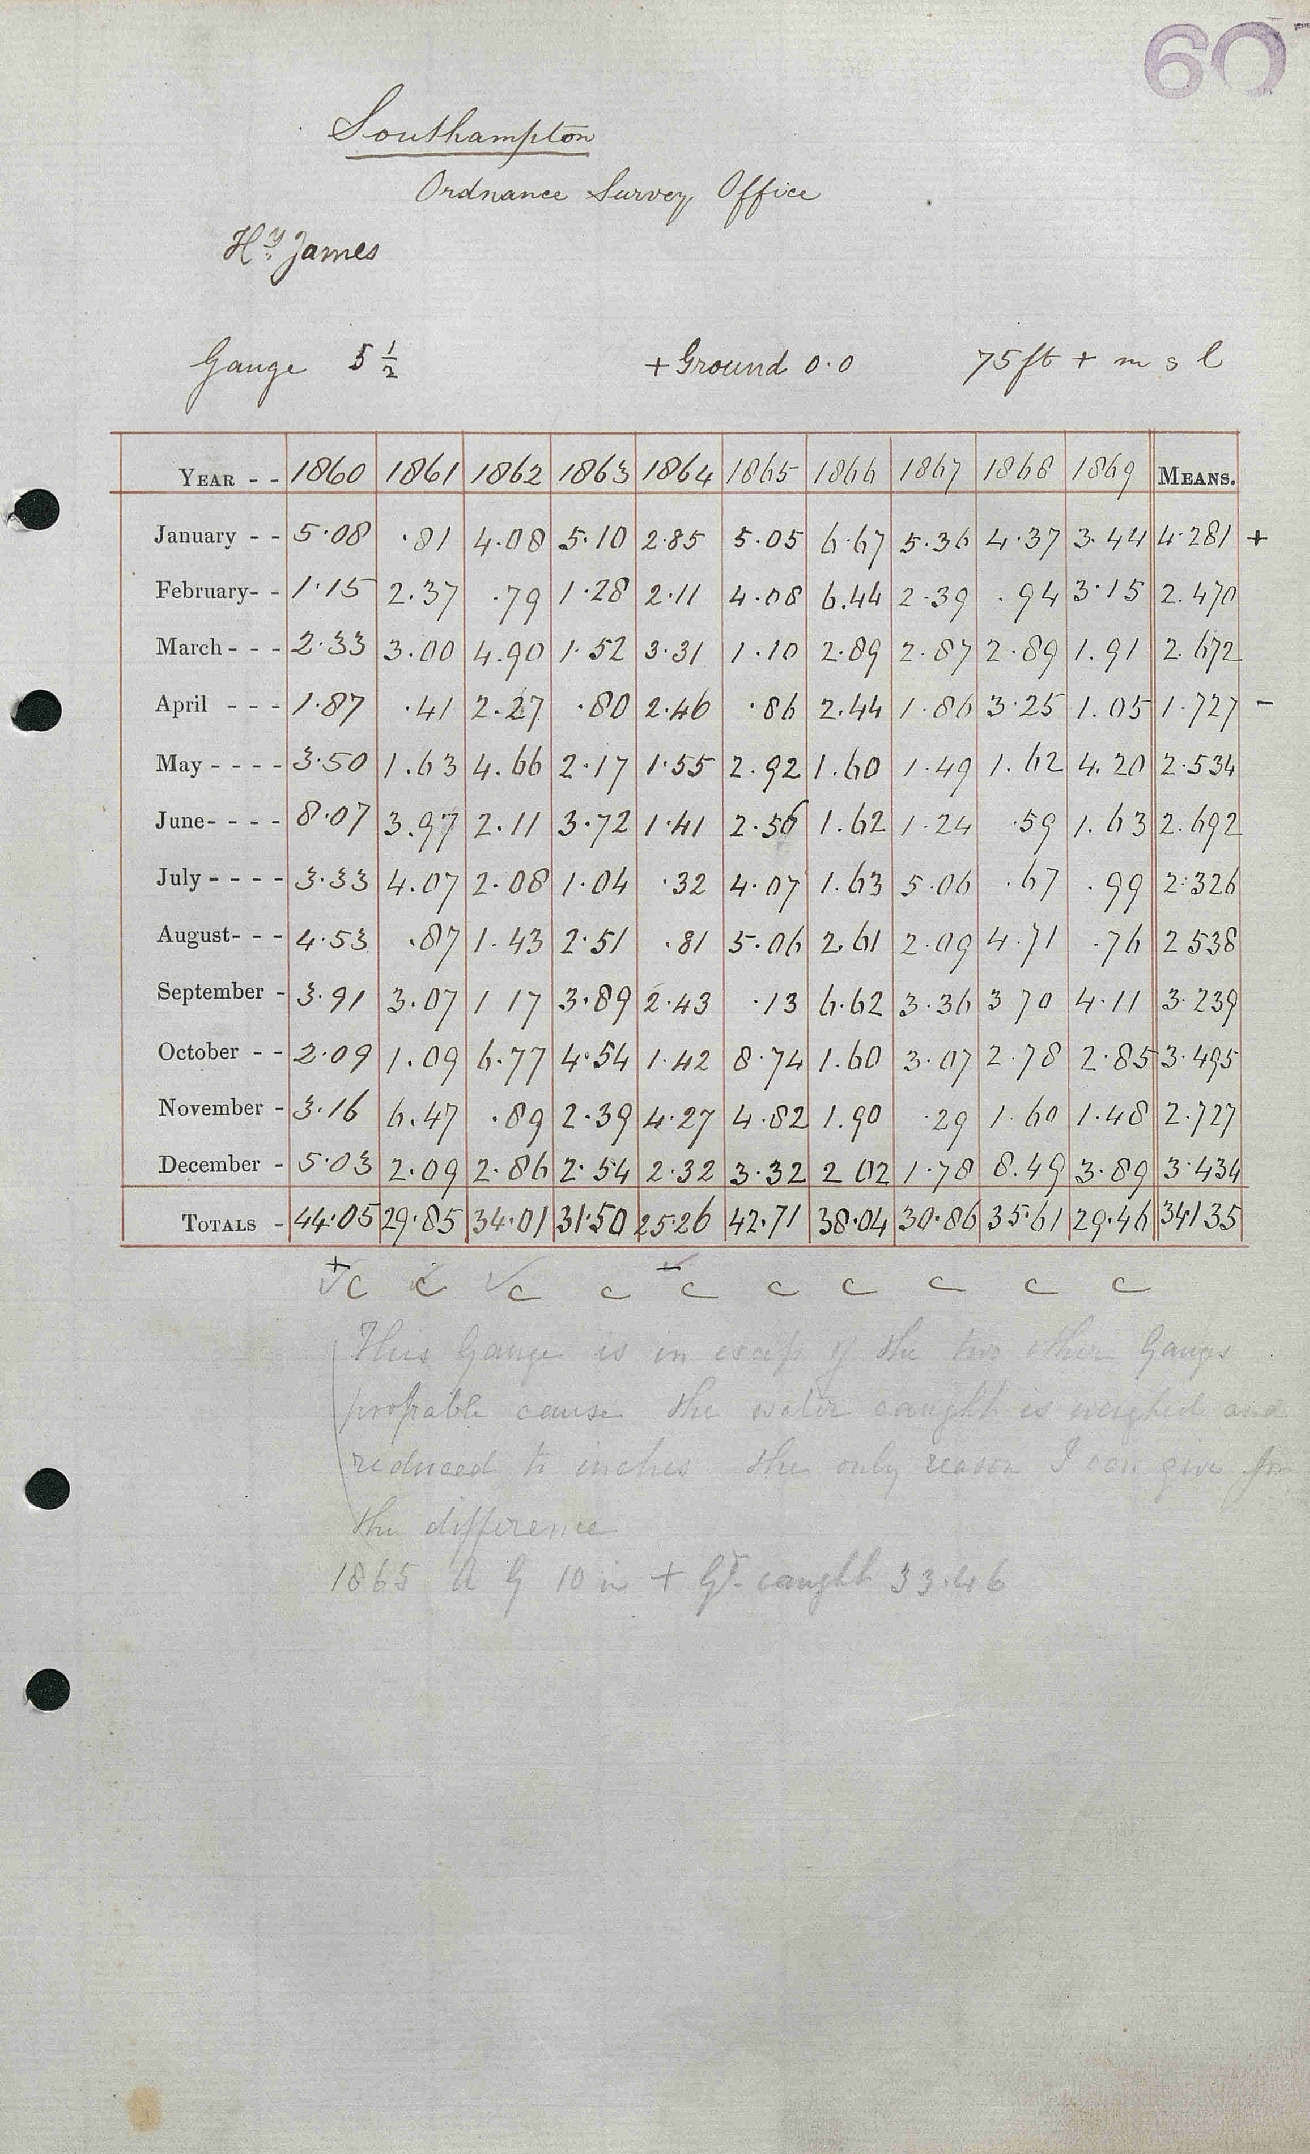 607
Southampton
Ordnance Survey Office
Hy James
Gauge 5 1/2 + Ground 0.0 75 ft + m s l
YEAR - - 1860 1861 1862 1863 1864 1865 1866 1867 1868 1869 MEANS.
January - - 5.08 .81 4.08 5.10 2.85 5.05 6.67 5.36 4.37 3.44 4.281 +
February- - 1.15 2.37 .79 1.28 2.11 4.08 6.44 2.39 .94 3.15 2.470
March - - - 2.33 3.00 4.90 1.52 3.31 1.10 2.89 2.87 2.89 1.91 2.672
April - - - 1.87 .41 2.27 .80 2.46 .86 2.44 1.86 3.25 1.05 1.727 -
May - - - - 3.50 1.63 4.66 2.17 1.55 2.92 1.60 1.49 1.62 4.20 2.534
June- - - - 8.07 3.97 2.11 3.72 1.41 2.56 1.62 1.24 .59 1.63 2.692
July - - - - 3.33 4.07 2.08 1.04 .32 4.07 1.63 5.06 .67 .99 2.326
August- - - 4.53 .87 1.43 2.51 .81 5.06 2.61 2.09 4.71 .76 2 538
September - 3.91 3.07 1 17 3.89 2.43 .13 6.62 3.36 3 70 4.11 3.239
October - - 2.09 1.09 6.77 4.54 1.42 8.74 1.60 3.07 2.78 2.85 3.495
November - 3.16 6.47 .89 2.39 4.27 4.82 1.90 .29 1.60 1.48 2.727
December - 5.03 2.09 2.86 2.54 2.32 3.32 2 02 1.78 8.49 3.89 3.434
TOTALS - 44.05 29.85 34.01 31.50 25.26 42.71 38.04 30.86 35.61 29.46 34.135
+ -
✓c c ✓c c c c c c c c
This Gauge is in excess of the two other Gauges
probable cause the water caught is weighed and
reduced to inches the only reason I can give for
the difference
1865 a G 10 in + Gd. caught 33.46